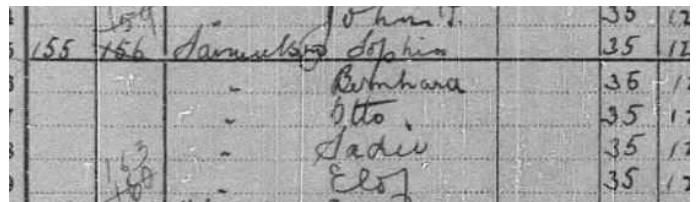 159 " John F. 35 12
155 156 Samuelson Sophia 35 12
" Bernhard 36 1
" Otto 35 12
" Sadie 35 12
163 160 " Elof 35 12